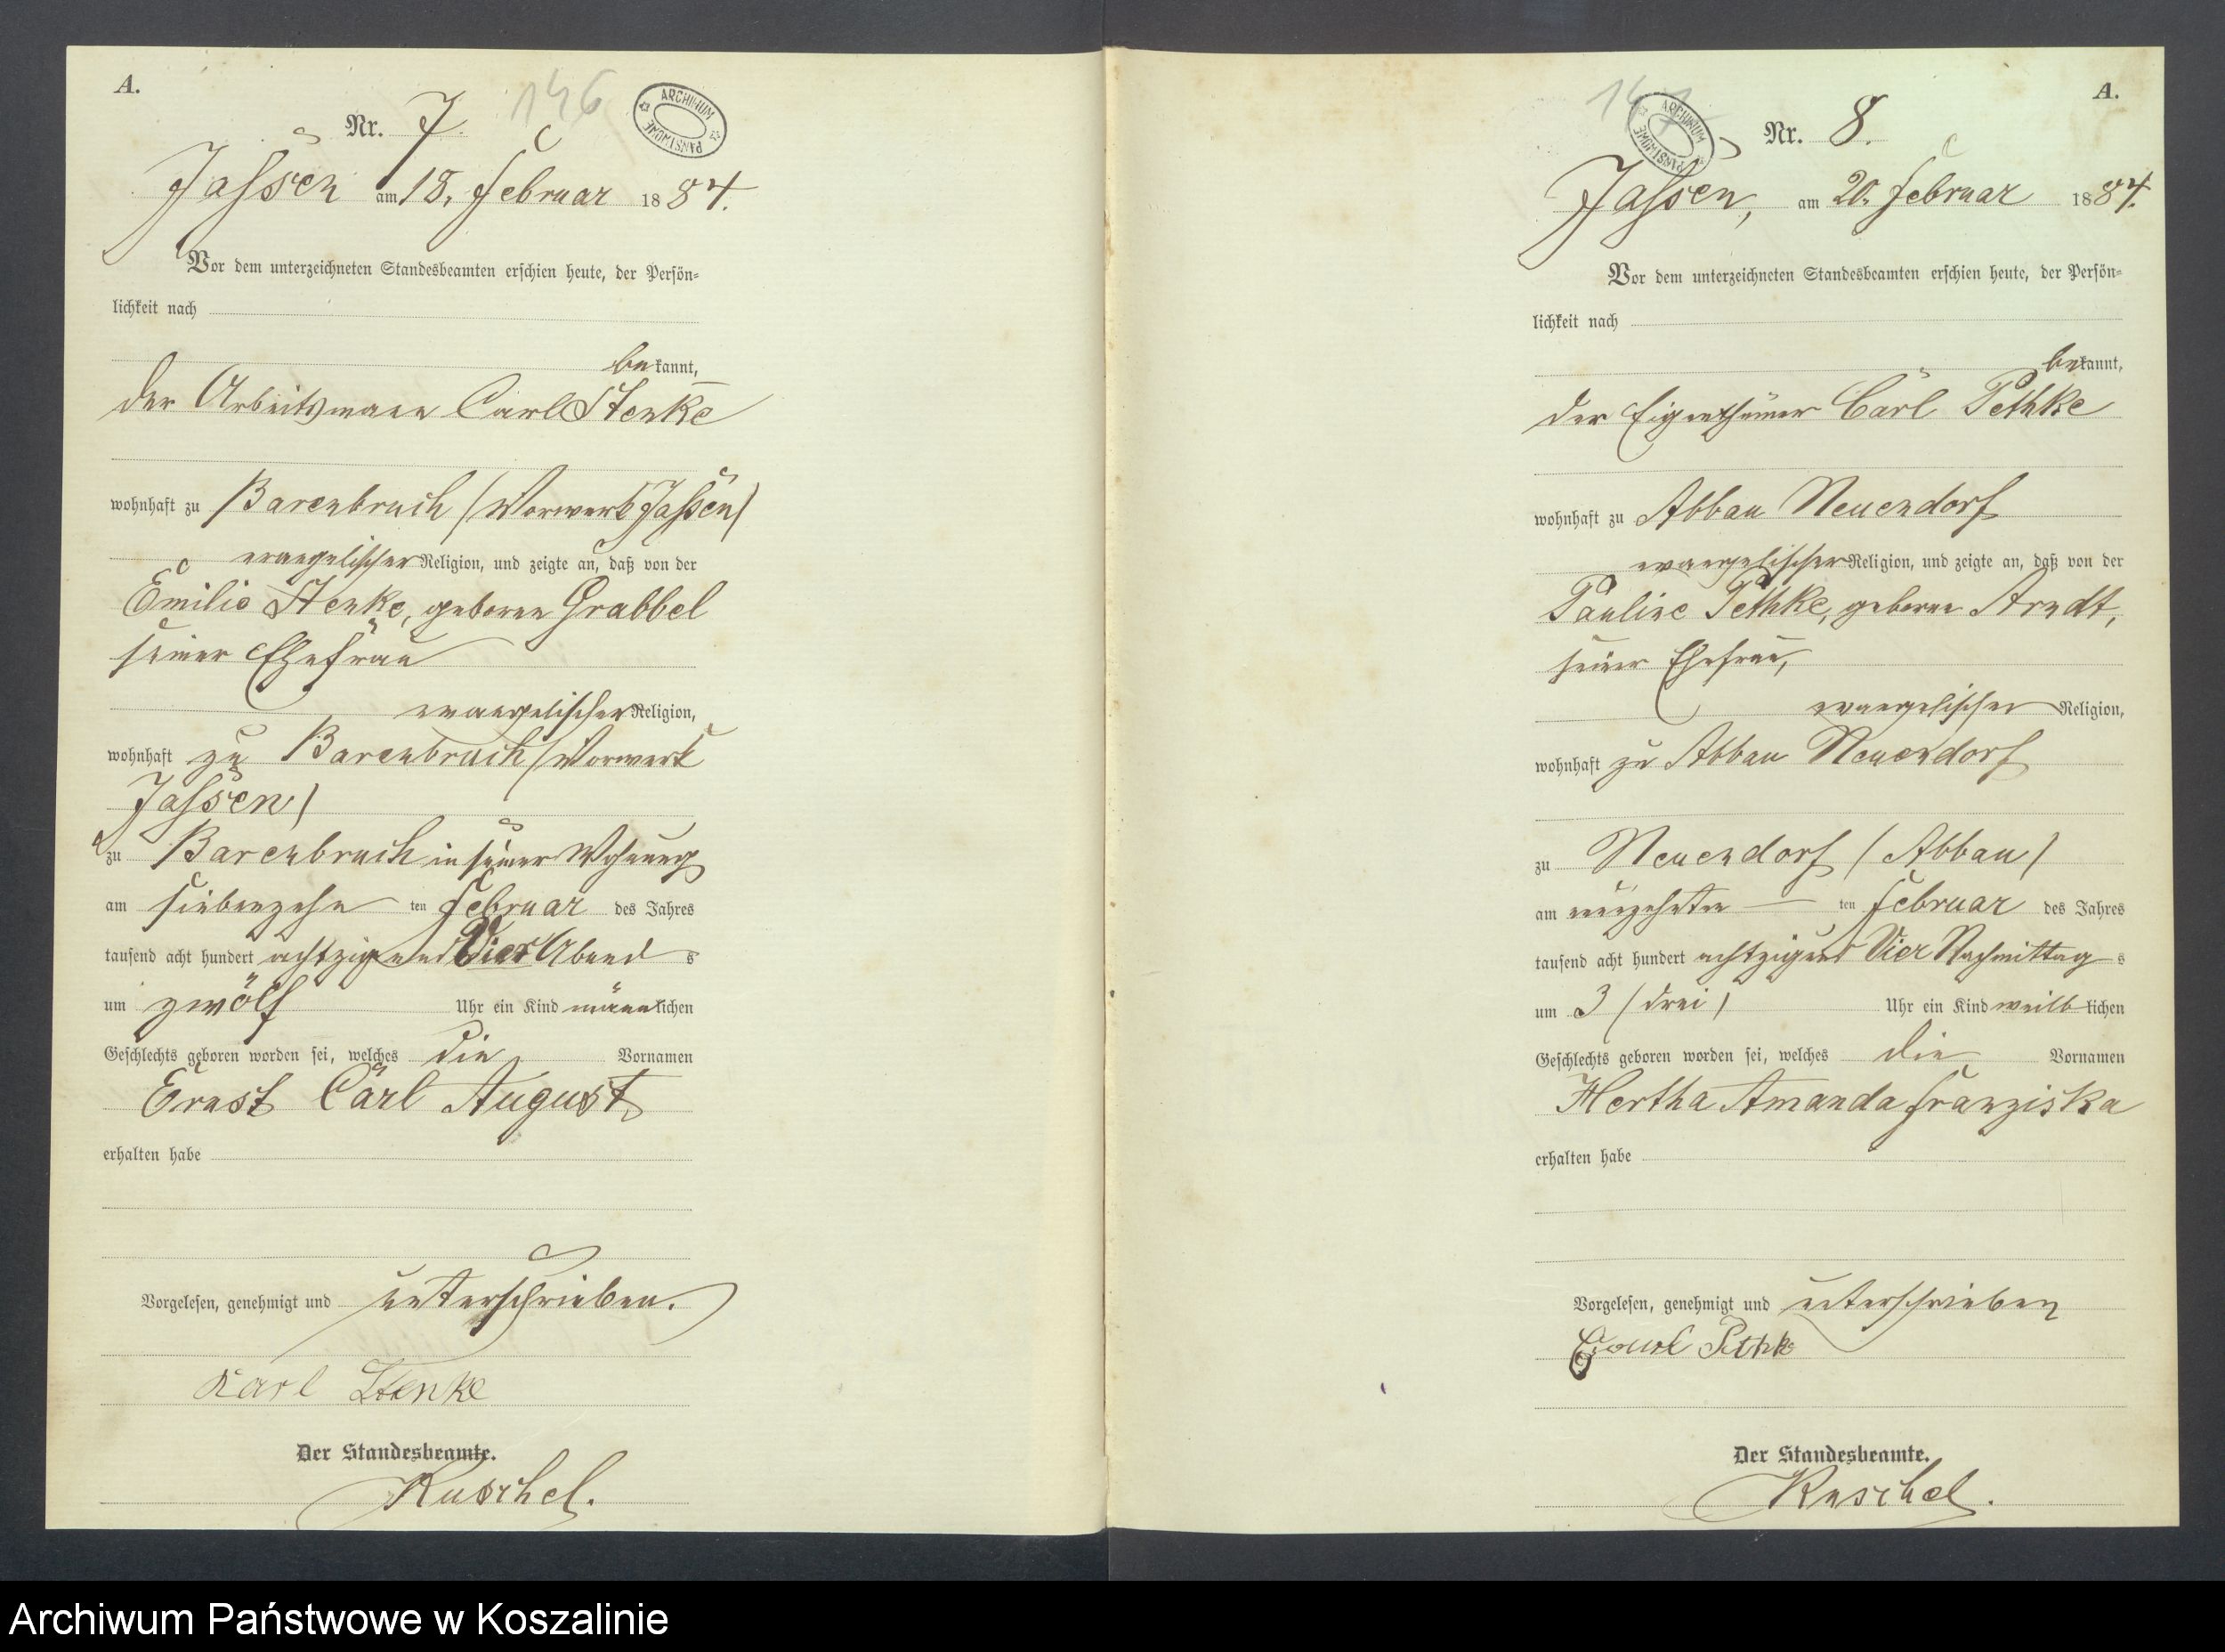 A.
146
ARCHIWUM PAŃSTWOWE
Nr. 7.
Jassen am 18. Februar 1884.
Vor dem unterzeichneten Standesbeamten erschien heute, der Persön-
lichkeit nach
bekannt,
der Arbeitsmann Carl Stenke
wohnhaft zu Barenbruch (Vorwerk Jassen)
evangelischer Religion, und zeigte an, daß von der
Emilie Stenke, geborne Grabbel
seiner Ehefrau
evangelischer Religion,
wohnhaft zu Barenbruch (Vorwerk
Jassen)
zu Barenbruch in seiner Wohnung
am siebenzehn ten Februar des Jahres
tausend acht hundert achtzig und Vier Abend s
um zwölf Uhr ein Kind männlichen
Geschlechts geboren worden sei, welches die Vornamen
Ernst Carl August
erhalten habe
Vorgelesen, genehmigt und unterschrieben.
Karl Stenke
Der Standesbeamte.
Kuschel.
A.
147
ARCHIWUM PAŃSTWOWE
Nr. 8.
Jassen, am 20. Februar 1884.
Vor dem unterzeichneten Standesbeamten erschien heute, der Persön-
lichkeit nach
bekannt,
der Eigenthümer Carl Pethke
wohnhaft zu Abbau Neuendorf
evangelischer Religion, und zeigte an, daß von der
Pauline Pethke, geborne Arndt,
seiner Ehefrau,
evangelischer Religion,
wohnhaft zu Abbau Neuendorf
zu Neuendorf (Abbau)
am neunzehnten ten Februar des Jahres
tausend acht hundert achtzig und Vier Nachmittag s
um 3 (drei) Uhr ein Kind weiblichen
Geschlechts geboren worden sei, welches die Vornamen
Hertha Amanda Franziska
erhalten habe
Vorgelesen, genehmigt und unterschrieben
Carl Pethke
Der Standesbeamte.
Kuschel.
Archiwum Państwowe w Koszalinie